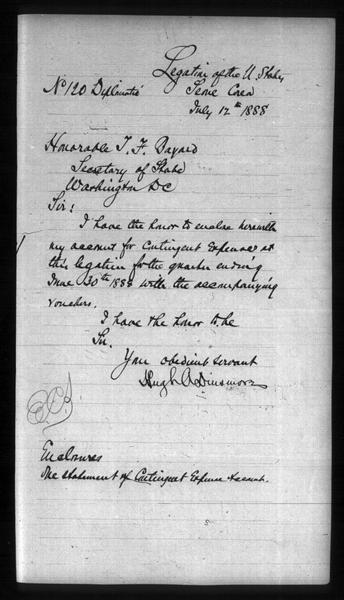 Legation of the U. States
No 120 Diplomatic Seoul Corea
July 12th 1888
Honorable T. F. Bayard
Secretary of State
Washington DC
Sir:
I have the honor to enclose herewith
my account for Contingent Expenses at
this legation for the quarter ending
June 30th 1888 with the accompanying
vouchers.
I have the honor to be
Sir.
Your obedient servant
Hugh A Dinsmore
Enclosures
One statement of Contingent Expense Account.